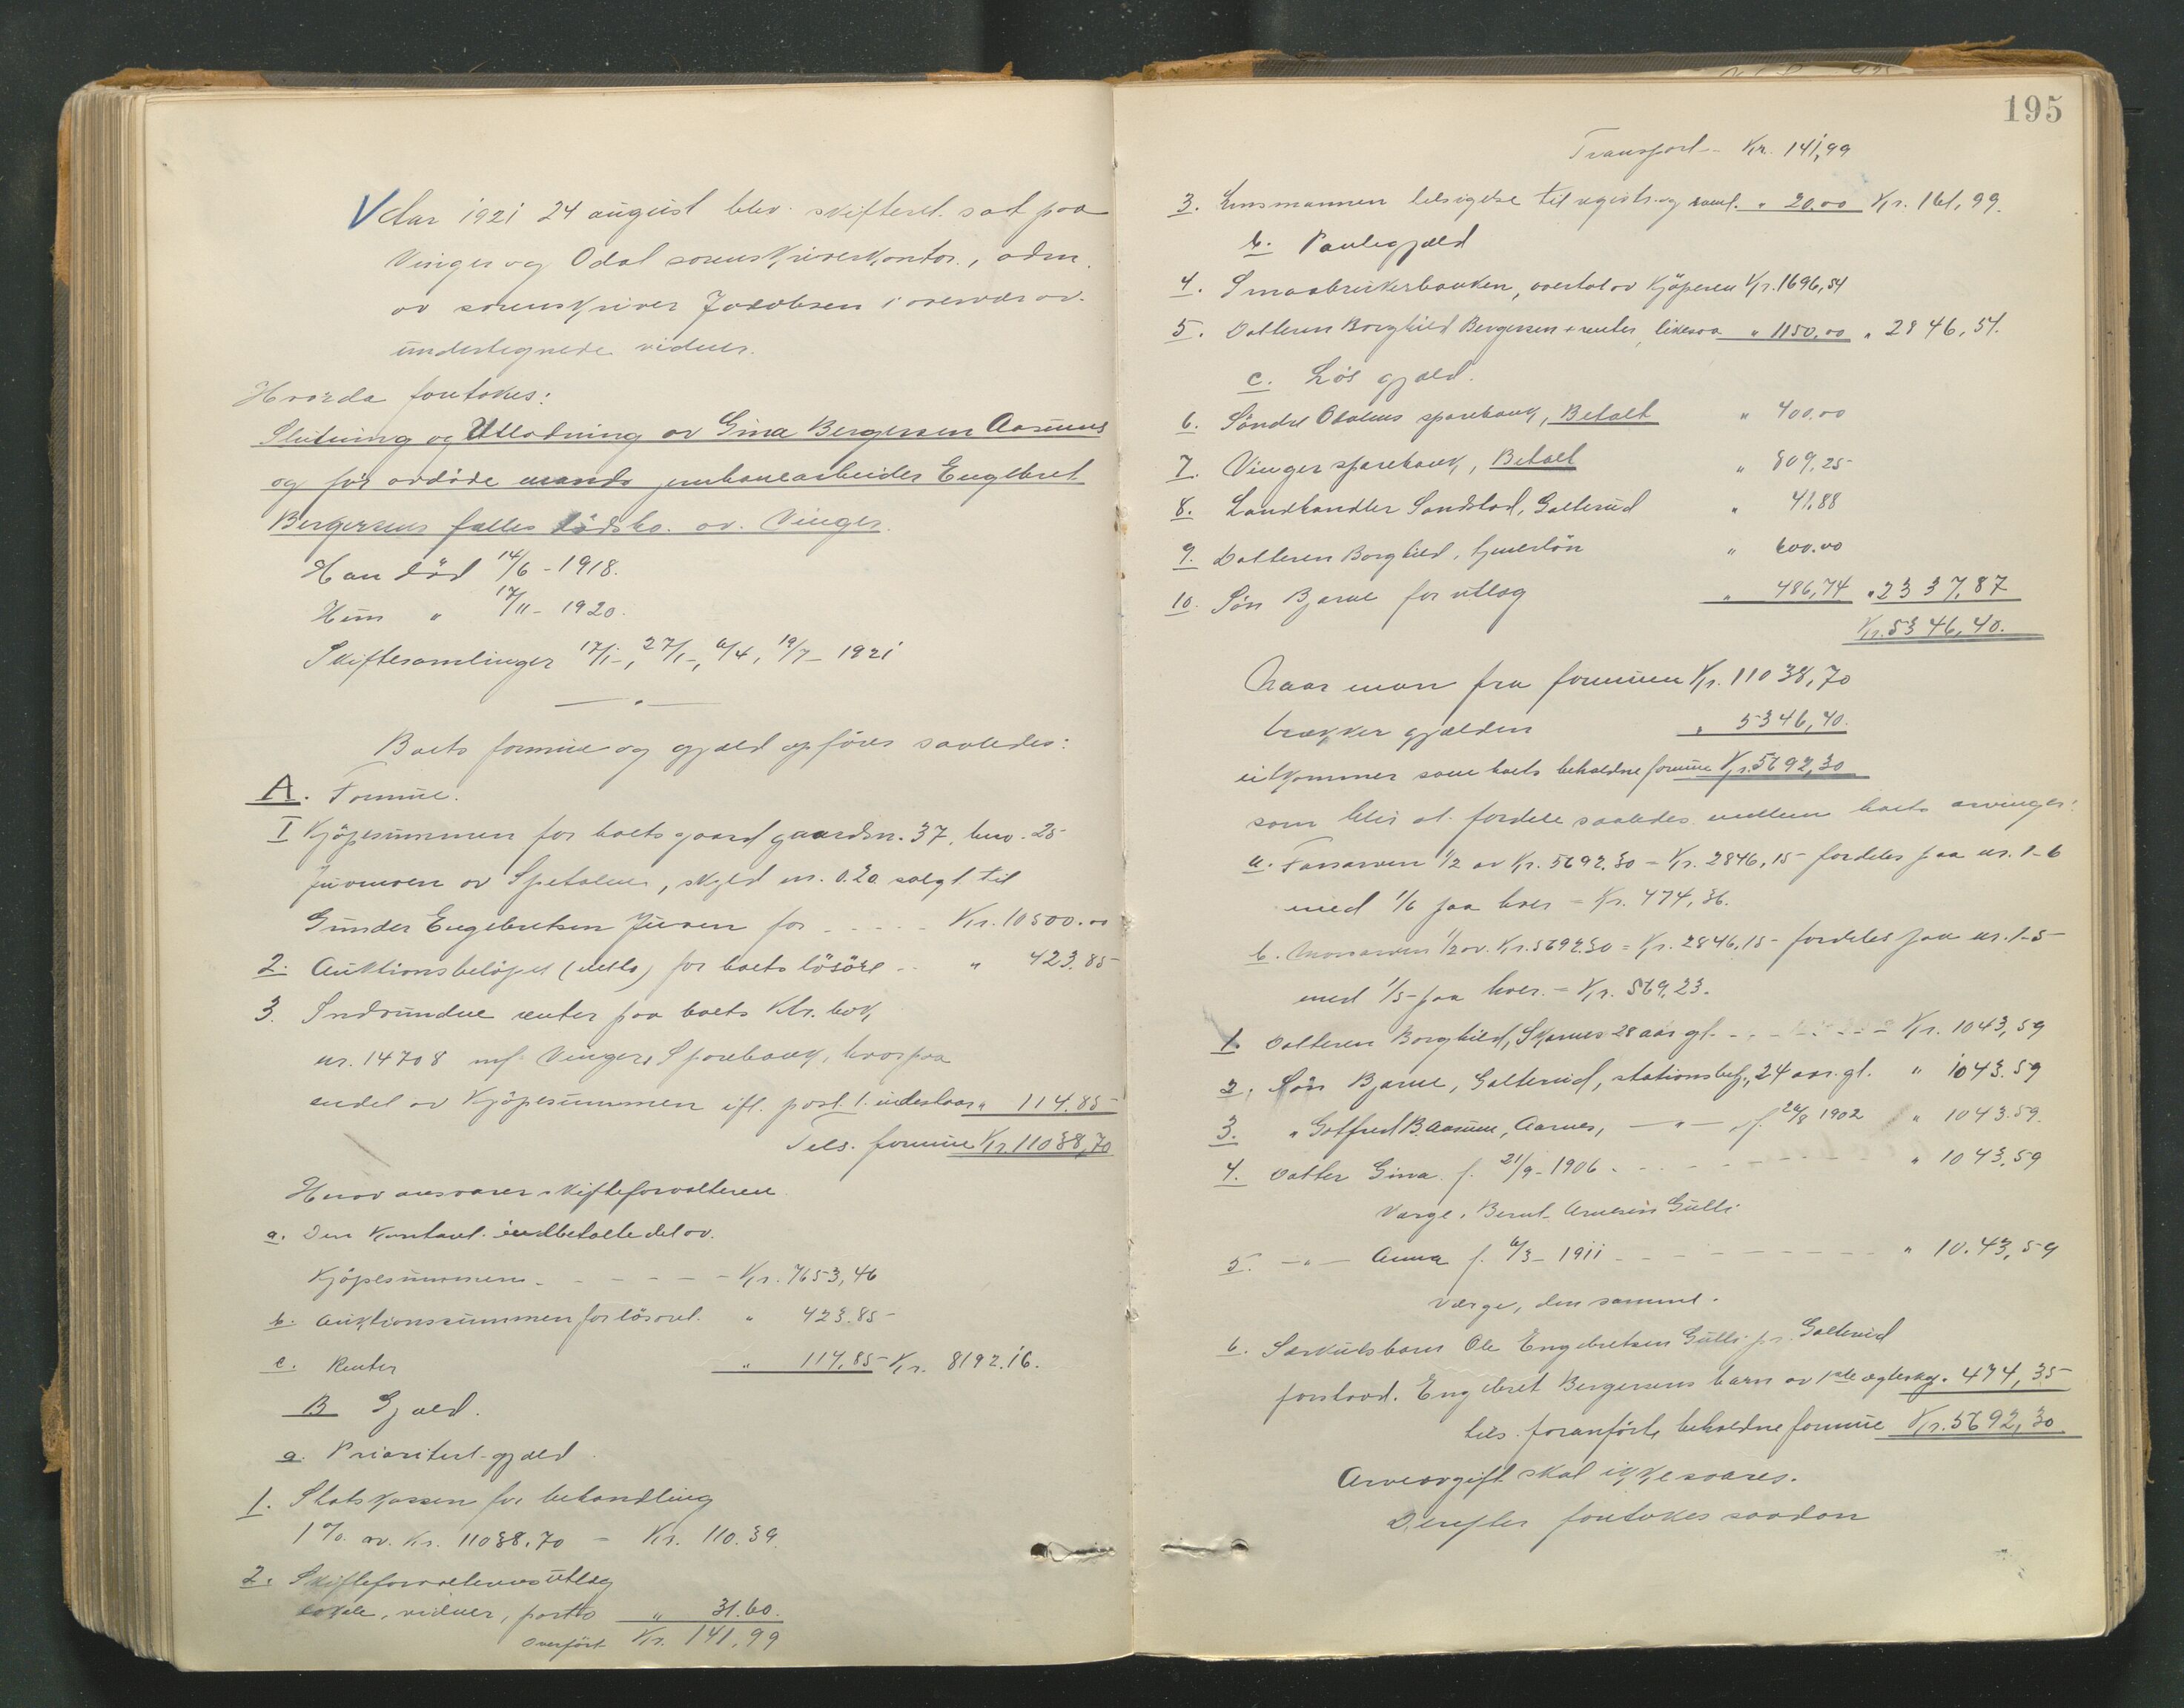 Aar 1921 24 august blev skifteret sat paa
Vinger og Odal sorenskriverkontor, adm.
av sorenskriver Jakobsen i overvær av
undertegnede vidner.
Hvorda foretokes:
Slutning og Utlodning av Gina Bergersen Aasruds
og før avdøde mands jernbanearbeider Engebret
Bergersens fælles dødsbo av Vinger.
Han død 14/6 - 1918.
Hun " 17/11 - 1920.
Skiftesamlinger 17/1-, 27/1-, 6/4, 19/7 - 1921
Boets formue og gjæld opføres saaledes:
A. Formue.
I Kjøpesummen for boets gaard gaardsn. 37, bno. 25
Juvnoen av Spetalen, skyld m. 0.20 solgt til
Gunder Engebretsen Juven for - - - - - Kr. 10500.00
2. Auktionsbeløpet (netto) for boets løsøre - - " 423.85
3. Indvundne renter paa boets Ktr. bok
nr. 14708 mf Vinger Sparebank, hvorpaa
endel av Kjøpesummen ift. post. 1. indestaar " 114.85
Tils. formue Kr. 11038,70
Herav ansvarer skifteforvalteren
a. Den Kontant indbetalte del av
Kjøpesummen - - - - - - Kr. 7653,46
b. Auktionssummen for løsøret. " 423.85
c. Renter " 114,85 Kr. 8192.16.
B Gjæld.
a. Prioritert gjæld
1. Statskassen for behandling
1 % av Kr. 11038.70 - Kr. 110.39
2. Skifteforvalterens utlæg
lokale, vidner, porto " 31.60.
Overført Kr. 141,99
195
Transport - - Kr. 141,99
3. Lensmannen tilsigelse til registr. og saml. " 20.00 Kr. 161,99.
b. Pantegjæld
4. Smaabrukerbanken, overtat av Kjøperen Kr. 1696,54
5. Datteren Borghild Bergersen + renter, likesaa " 1150.00 " 2846,54.
c. Løs gjæld.
6. Søndre Odalens sparebank, Betalt " 400.00
7. Vinger sparebank, Betalt " 809,25
8. Landhandler Sandstad, Galterud " 41.88
9. Datteren Borghild, tjenerløn " 600.00
10. Søn Bjarne for utlæg " 486,74 " 2337,87
Kr. 5346,40.
Naar man fra formuen Kr. 11038,70
trækker gjælden " 5346,40.
utkommer som boets beholdne formue Kr. 5692,30
som blir at fordele saaledes mellem boets arvinger:
a. Farsarven 1/2 av Kr. 5692.30 = Kr. 2846,15 fordeles paa nr. 1-6
med 1/6 paa hver = Kr. 474,36.
b. Morsarven 1/2 av Kr. 5692.30 = Kr. 2846,15 fordeles paa nr. 1-5
med 1/5 paa hver. = Kr. 569,23.
1. Datteren Borghild, Skarnes 28 aar gl. - - - - - - Kr. 1043,59
2. Søn Bjarne, Galterud, stationsbetj., 24 aar. gl. " 1043.59
3. " Gotfred B. Aasrum, Aarnes, - " - f. 24/8 1902 " 1043.59.
4. Datter Gina f. 21/9 - 1906 - - - - - - - - - " 1043,59
Værge, Bernt Arnesen Gulli
5. - " - Anna f. 6/3 - 1911 - - - - - - - - - - " 10.43,59
Værge, den samme.
6. Særkulsbarn Ole Engebretsen Gulli pr. Galterud
forstaad. Engebret Bergersens barn av 1ste egteskap " 474,35
tils. foranførte beholdne formue Kr. 5692,30
Arveavgift skal ikke svares.
Derefter foretokes saadan